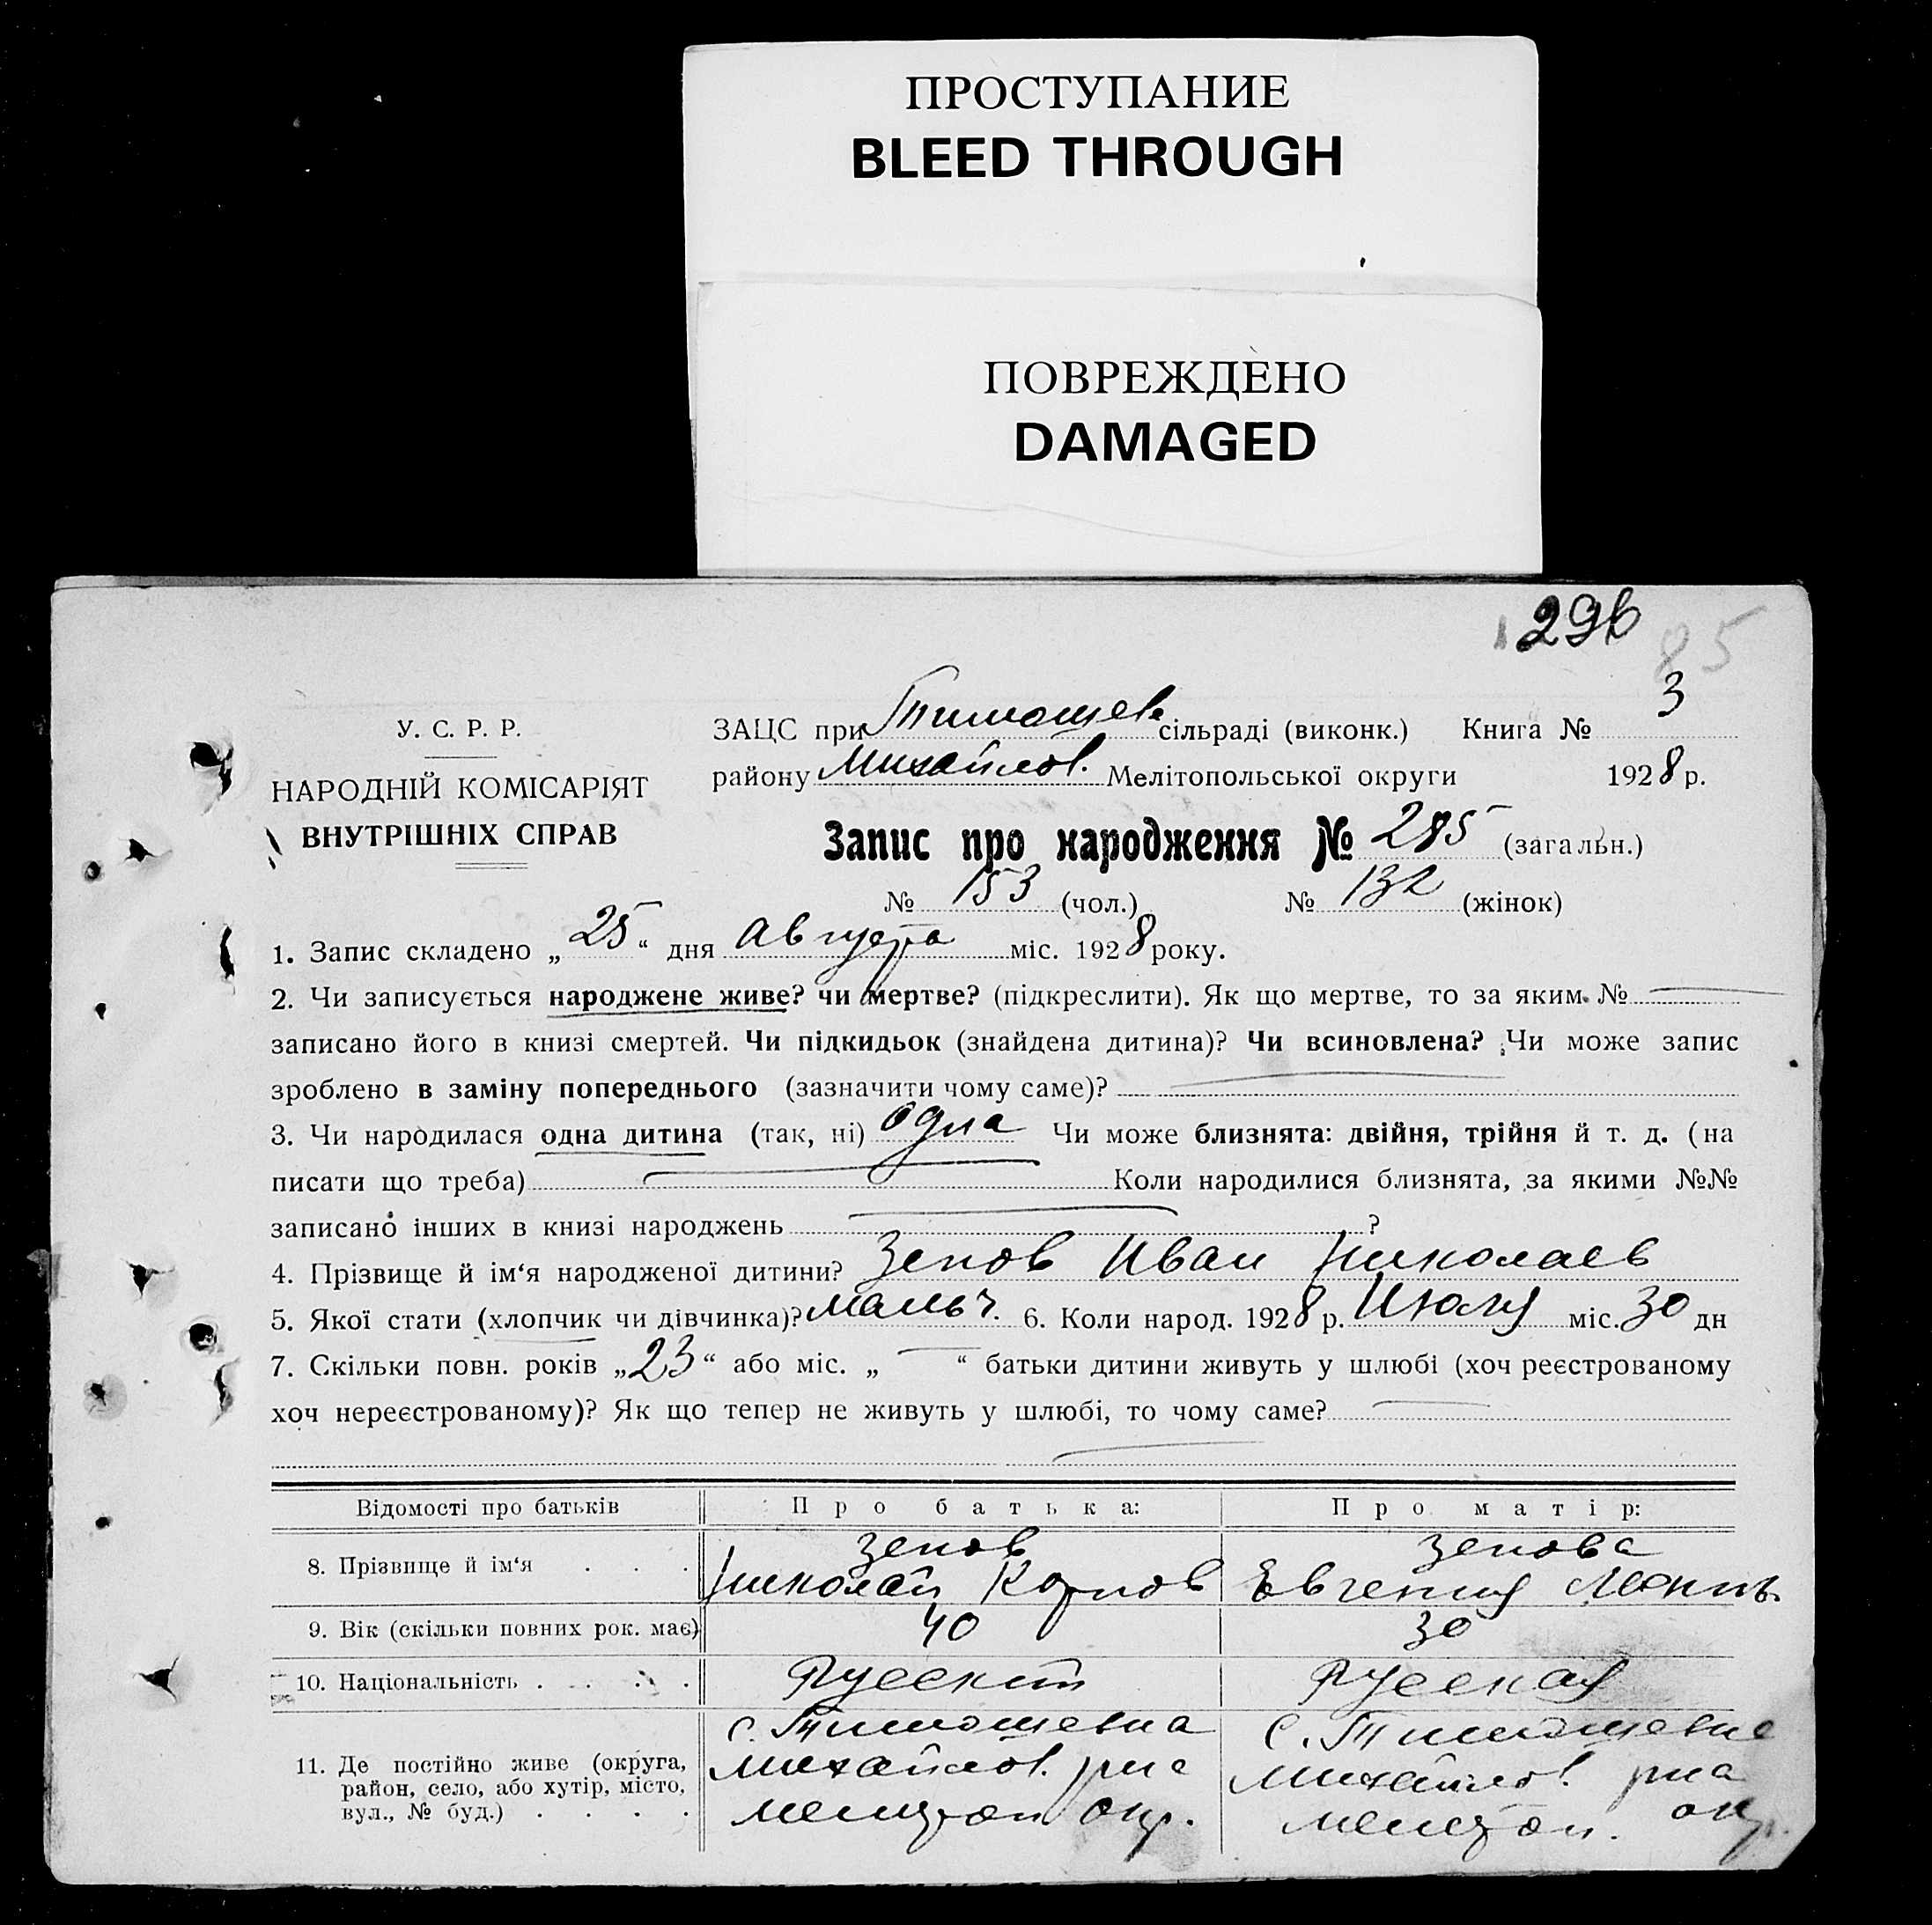 ПРОСТУПАНИЕ
BLEED THROUGH
ПОВРЕЖДЕНО
DAMAGED
296
85
У. С. Р. Р.
НАРОДНІЙ КОМІСАРІЯТ
ВНУТРІШНІХ СПРАВ
ЗАЦС при Тимошев сільраді (виконк.) Книга № 3
району Михайлов. Мелітопольської округи 1928 р.
Запис про народження № 285 (загальн.)
№ 153 (чол.) № 132 (жінок)
1. Запис складено „25“ дня Августа міс. 1928 року.
2. Чи записується народжене живе? чи мертве? (підкреслити). Як що мертве, то за яким №
записано його в книзі смертей. Чи підкидьок (знайдена дитина)? Чи всиновлена? Чи може запис
зроблено в заміну попереднього (зазначити чому саме)?
3. Чи народилася одна дитина (так, ні) одна Чи може близнята: двійня, трійня й т. д. (на
писати що треба) Коли народилися близнята, за якими №№
записано інших в книзі народжень ?
4. Прізвище й ім‘я народженої дитини? Зенов Иван Николаев
5. Якої стати (хлопчик чи дівчинка)? мальч. 6. Коли народ. 1928 р. Июля міс. 30 дн
7. Скільки повн. років „23“ або міс. „ “ батьки дитини живуть у шлюбі (хоч реєстрованому
хоч нереєстрованому)? Як що тепер не живуть у шлюбі, то чому саме?
Відомості про батьків Про батька: Про матір:
8. Прізвище й ім‘я . . . Зенов Николай Карпов Зенова Евгения
9. Вік (скільки повних рок. має) 40 30
10. Національність . . . . Русский Русская
11. Де постійно живе (округа,
район, село, або хутір, місто,
вул., № буд.) . . . .
с. Тимошевка
Михайлов. рна
Мелитоп окр.
с. Тимошевке
Михайлов. рна
Мелитоп. окр.